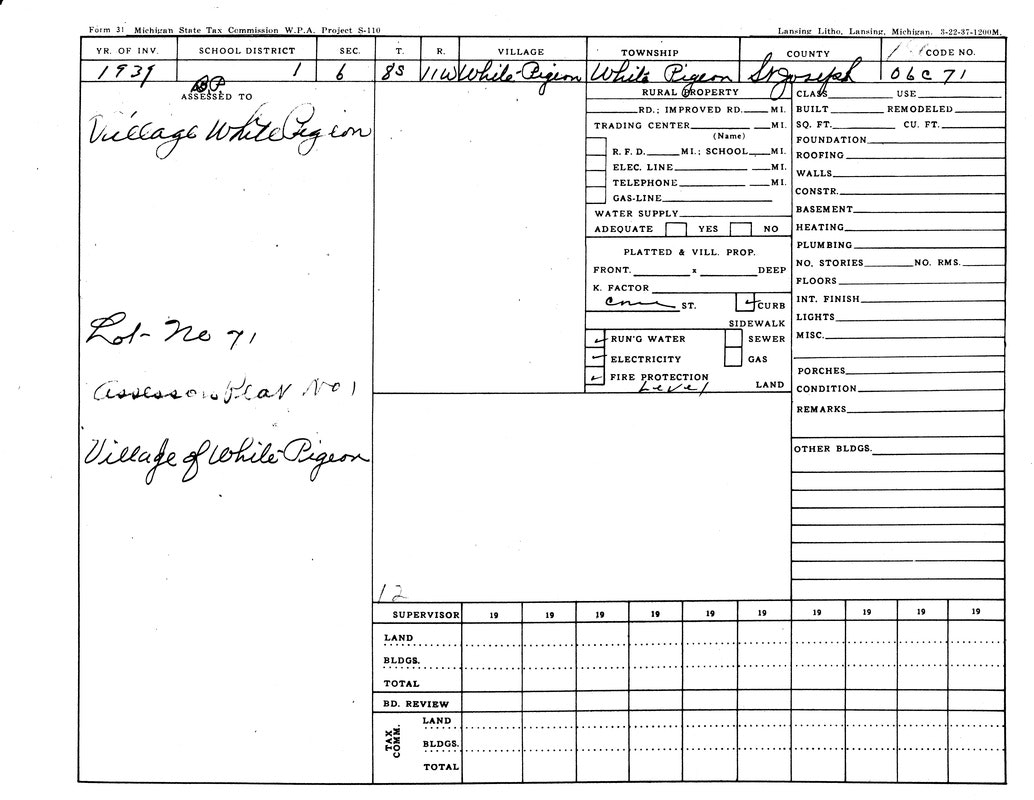 Form 31 Michigan State Tax Commission W.P.A. Project S-110 Lansing Litho, Lansing, Michigan. 3-22-37-1200M.
YR. OF INV. SCHOOL DISTRICT SEC. T. R. VILLAGE TOWNSHIP COUNTY CODE NO.
1939 1 6 8S 11W White Pigeon White Pigeon St Joseph 06C 71
ASSESSED TO
Village White Pigeon
Lot- No 71
Assessors Plat No 1
Village of White Pigeon
12
RURAL PROPERTY
RD.; IMPROVED RD. MI.
TRADING CENTER MI.
(Name)
R. F. D. MI.; SCHOOL MI.
ELEC. LINE MI.
TELEPHONE MI.
GAS-LINE
WATER SUPPLY
ADEQUATE YES NO
PLATTED & VILL. PROP.
FRONT. x DEEP
K. FACTOR
ST. CURB
SIDEWALK
RUN'G WATER SEWER
ELECTRICITY GAS
FIRE PROTECTION
Level LAND
CLASS USE
BUILT REMODELED
SQ. FT. CU. FT.
FOUNDATION
ROOFING
WALLS
CONSTR.
BASEMENT
HEATING
PLUMBING
NO. STORIES NO. RMS.
FLOORS
INT. FINISH
LIGHTS
MISC.
PORCHES
CONDITION
REMARKS
OTHER BLDGS.
SUPERVISOR 19 19 19 19 19 19 19 19 19 19
LAND
BLDGS.
TOTAL
BD. REVIEW
TAX COMM.
LAND
BLDGS.
TOTAL